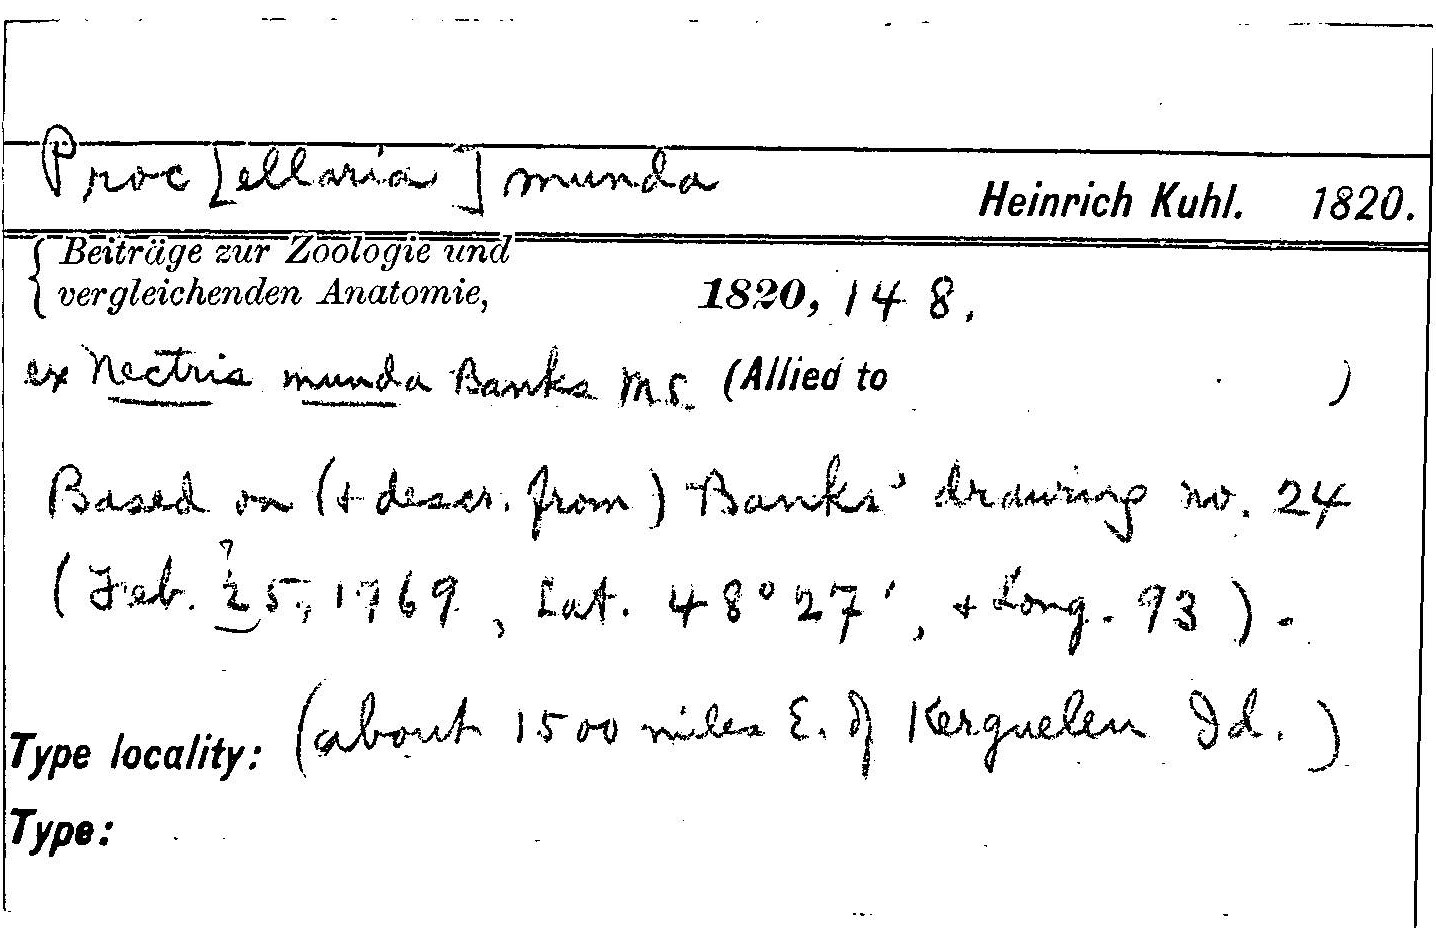 Proc[ellaria] munda
Heinrich Kuhl. 1820.
Beiträge zur Zoologie und
vergleichenden Anatomie, 1820, 148.
ex Nectris munda Banks MS. (Allied to )
Based on (+ descr. from) Banks' drawing no. 24
?
(Feb. 25, 1769, Lat. 48° 27', + Long. 93).
Type locality: (about 1500 miles E. of Kerguelen Id.)
Type: